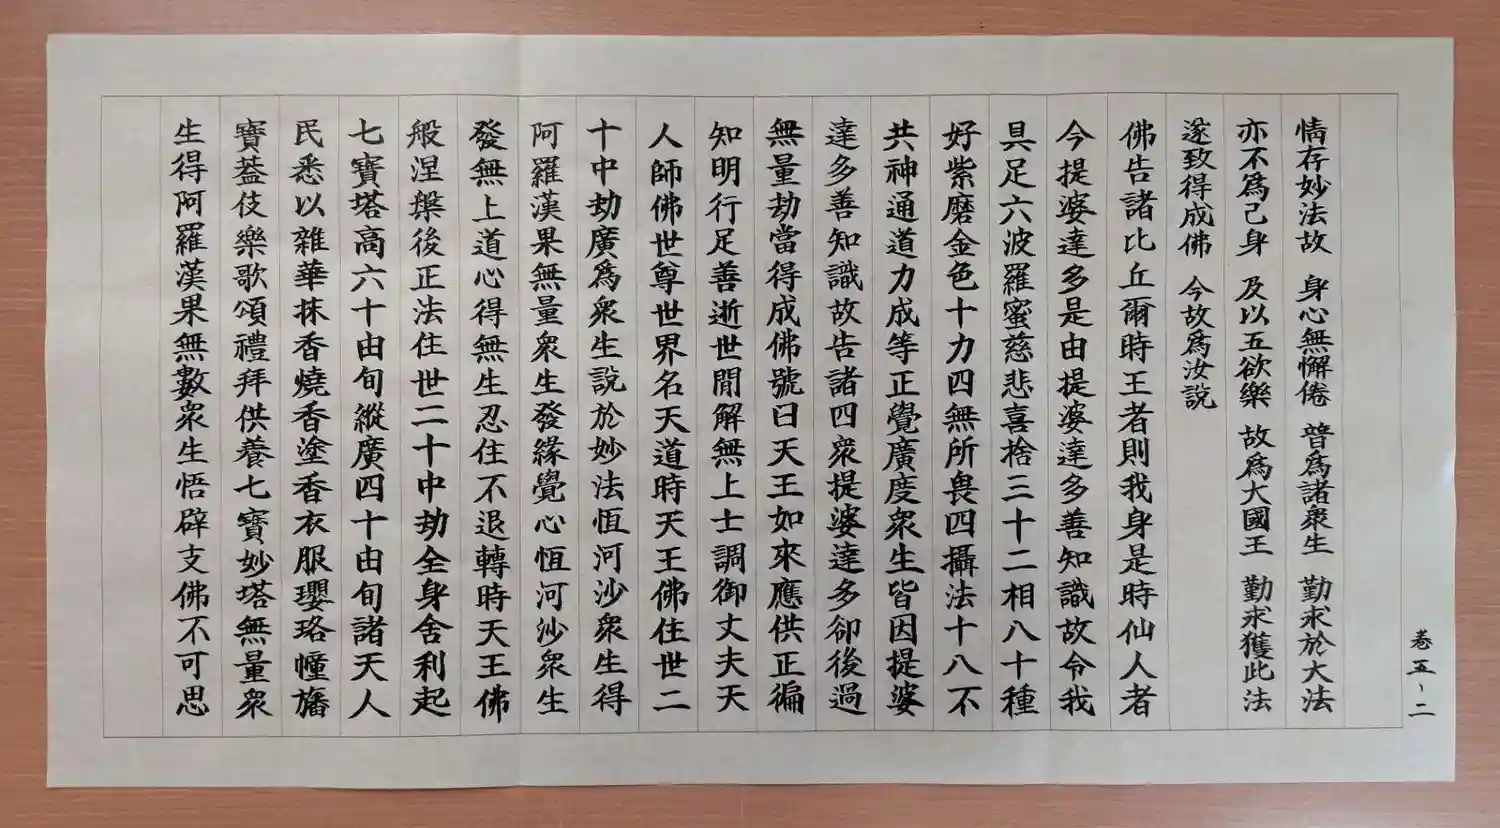 卷五-二
情存妙法故 身心無懈倦 普為諸衆生 勤求於大法
亦不為己身 及以五欲樂 故為大國王 勤求獲此法
遂致得成佛 今故為汝說
佛告諸比丘爾時王者則我身是時仙人者
今提婆達多是由提婆達多善知識故令我
具足六波羅蜜慈悲喜捨三十二相八十種
好紫磨金色十力四無所畏四攝法十八不
共神通道力成等正覺廣度衆生皆因提婆
達多善知識故告諸四衆提婆達多卻後過
無量劫當得成佛號曰天王如來應供正徧
知明行足善逝世間解無上士調御丈夫天
人師佛世尊世界名天道時天王佛住世二
十中劫廣為衆生說於妙法恆河沙衆生得
阿羅漢果無量衆生發緣覺心恆河沙衆生
發無上道心得無生忍住不退轉時天王佛
般涅槃後正法住世二十中劫全身舍利起
七寶塔高六十由旬縱廣四十由旬諸天人
民悉以雜華抹香燒香塗香衣服瓔珞幢旛
寶蓋伎樂歌頌禮拜供養七寶妙塔無量衆
生得阿羅漢果無數衆生悟辟支佛不可思